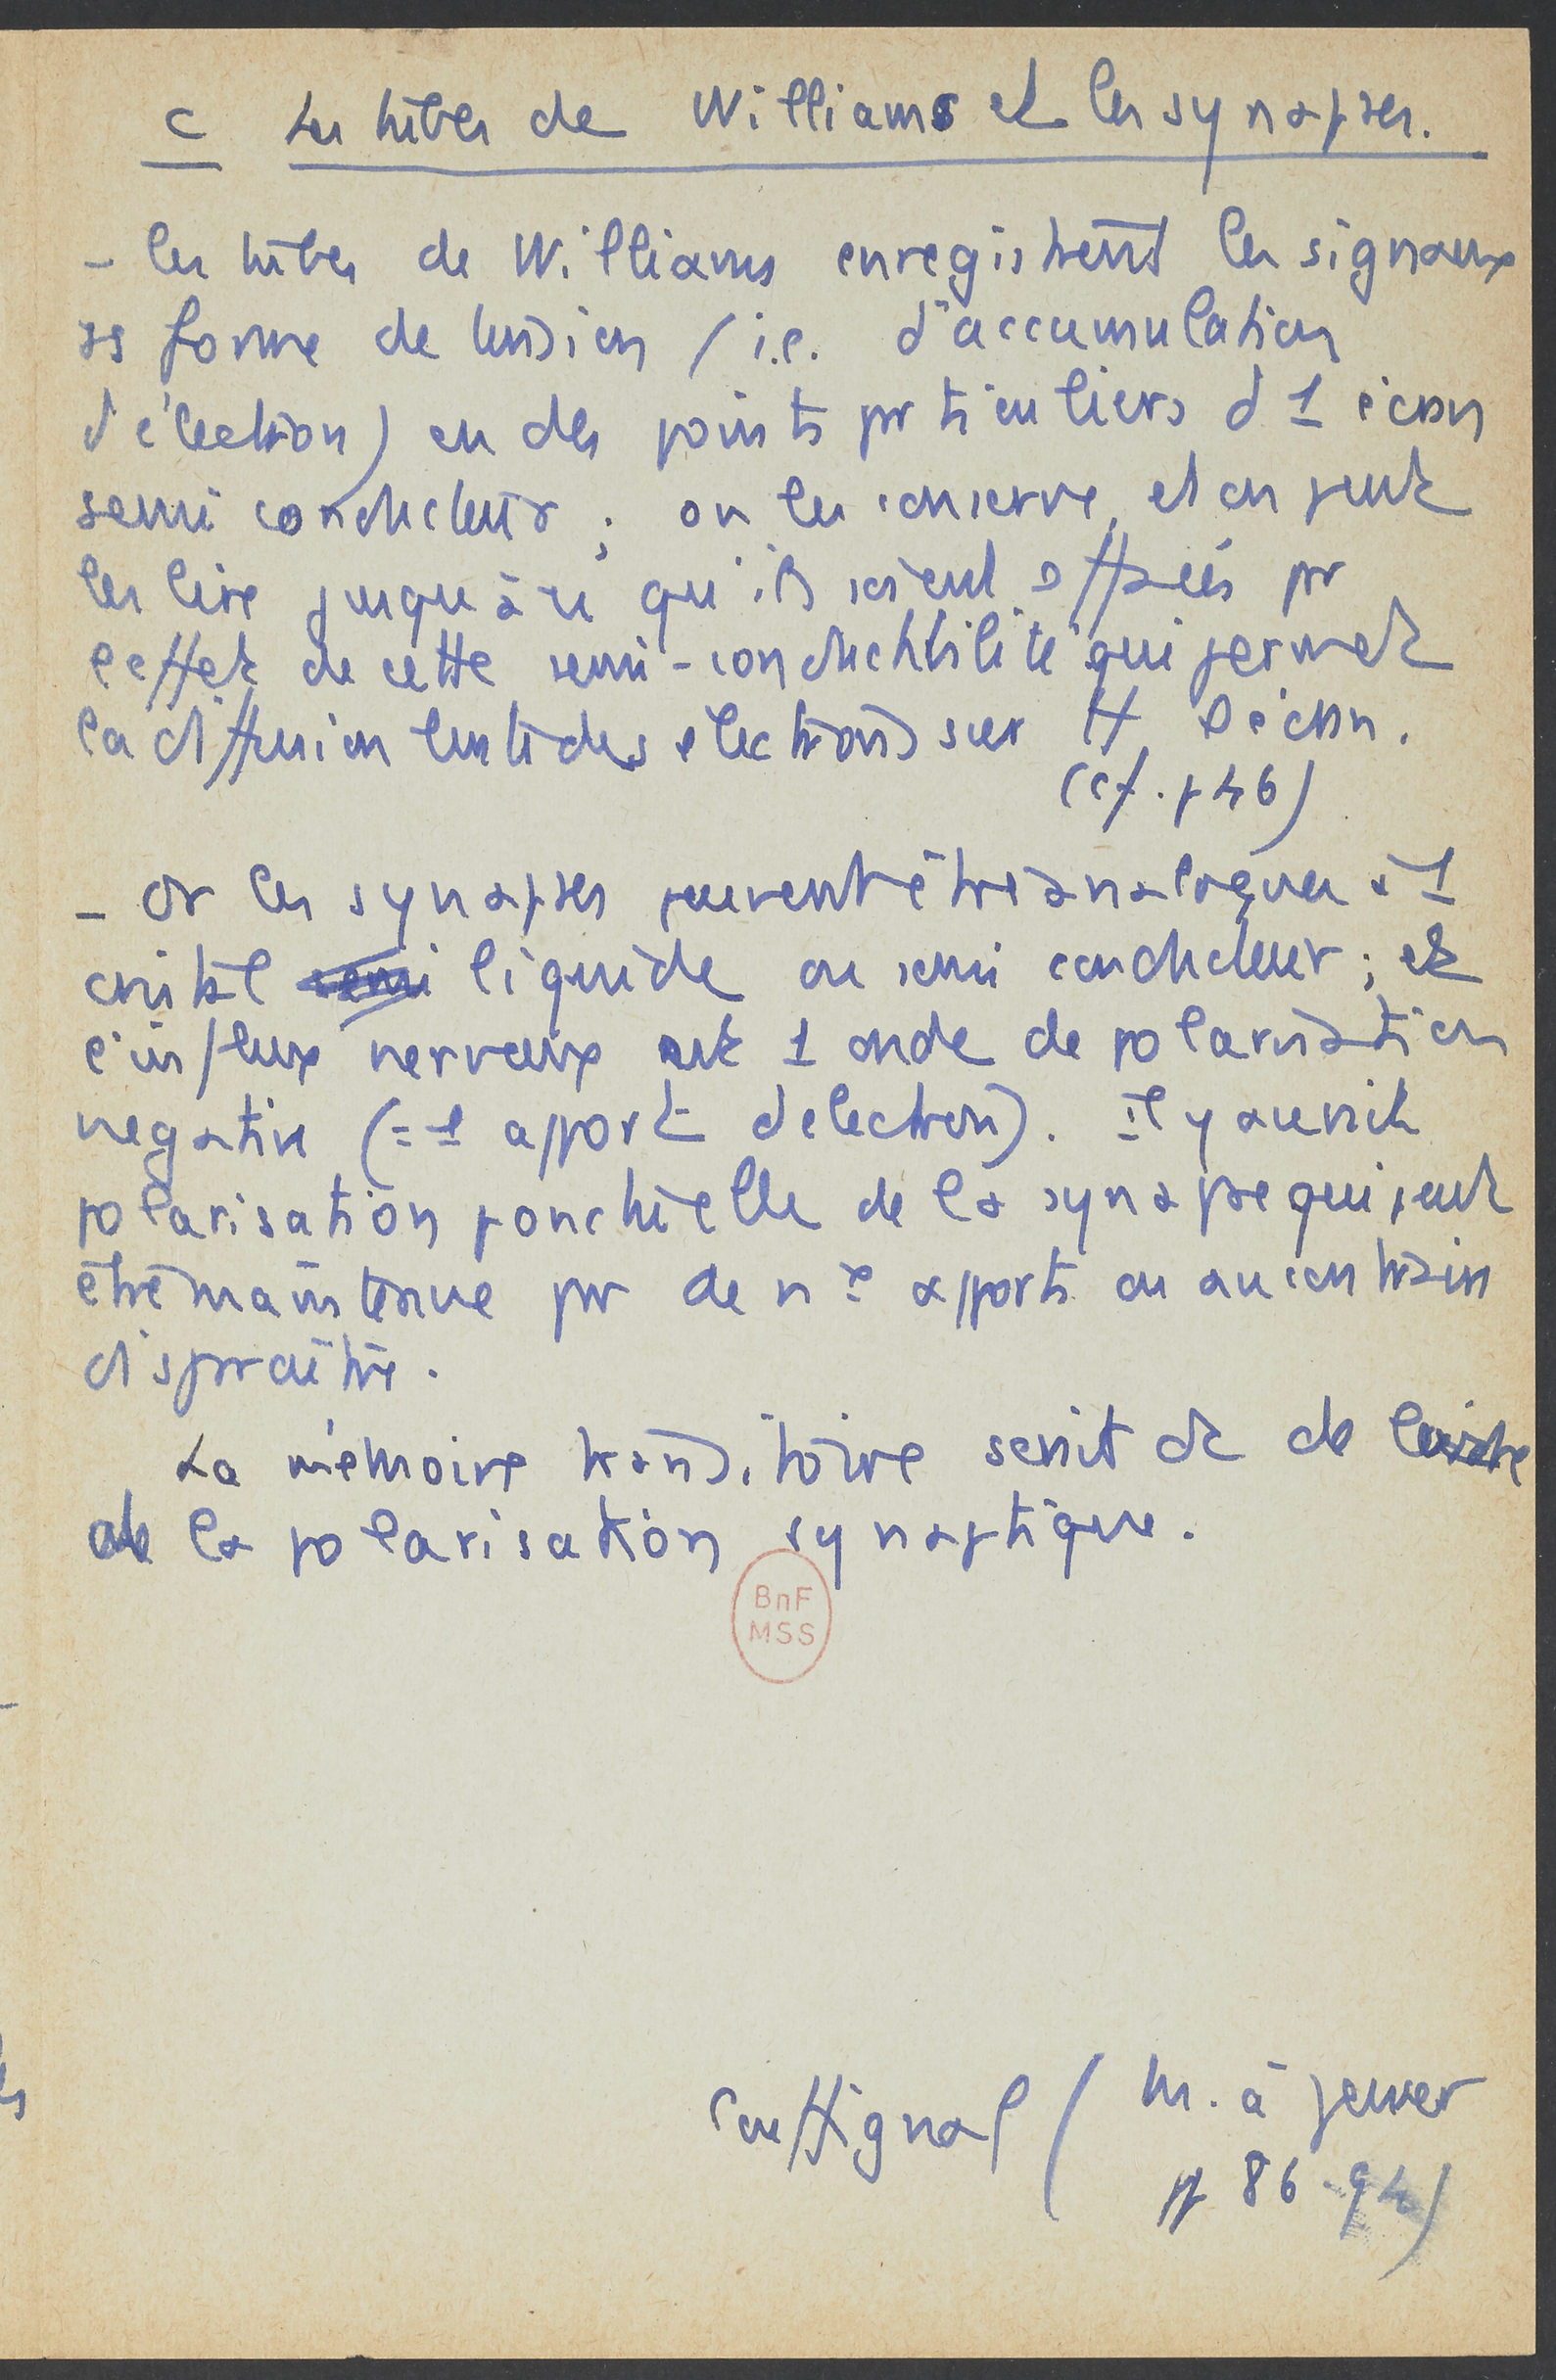 c Les tubes de Williams et les synapses.
- les tubes de Williams enregistrent les signaux
ss forme de tension (i.e. d'accumulation
d'électron) en des points prticuliers d 1 écran
semi conducteur ; on les conserve, et on peut
les lire jusqu'à ce qu'ils soient effacés pr
l'effet de cette semi-conductibilité qui permet
la diffusion lente des électrons sur tt l'écran.
(cf. p 46)
- Or les synapses peuvent être analogues à 1
cristal semi liquide ou semi conducteur ; et
l'influx nerveux est 1 onde de polarisation
negative (= 1 apport d'electron). Il y aurait
polarisation ponctuelle de la synapse qui peut
être maintenue pr de nx apports ou au contraire
disparaître.
La mémoire transitoire serait dc de l'ordre
de la polarisation synaptique.
BnF
MSS
Couffignal (M. à penser
pp 86-94)